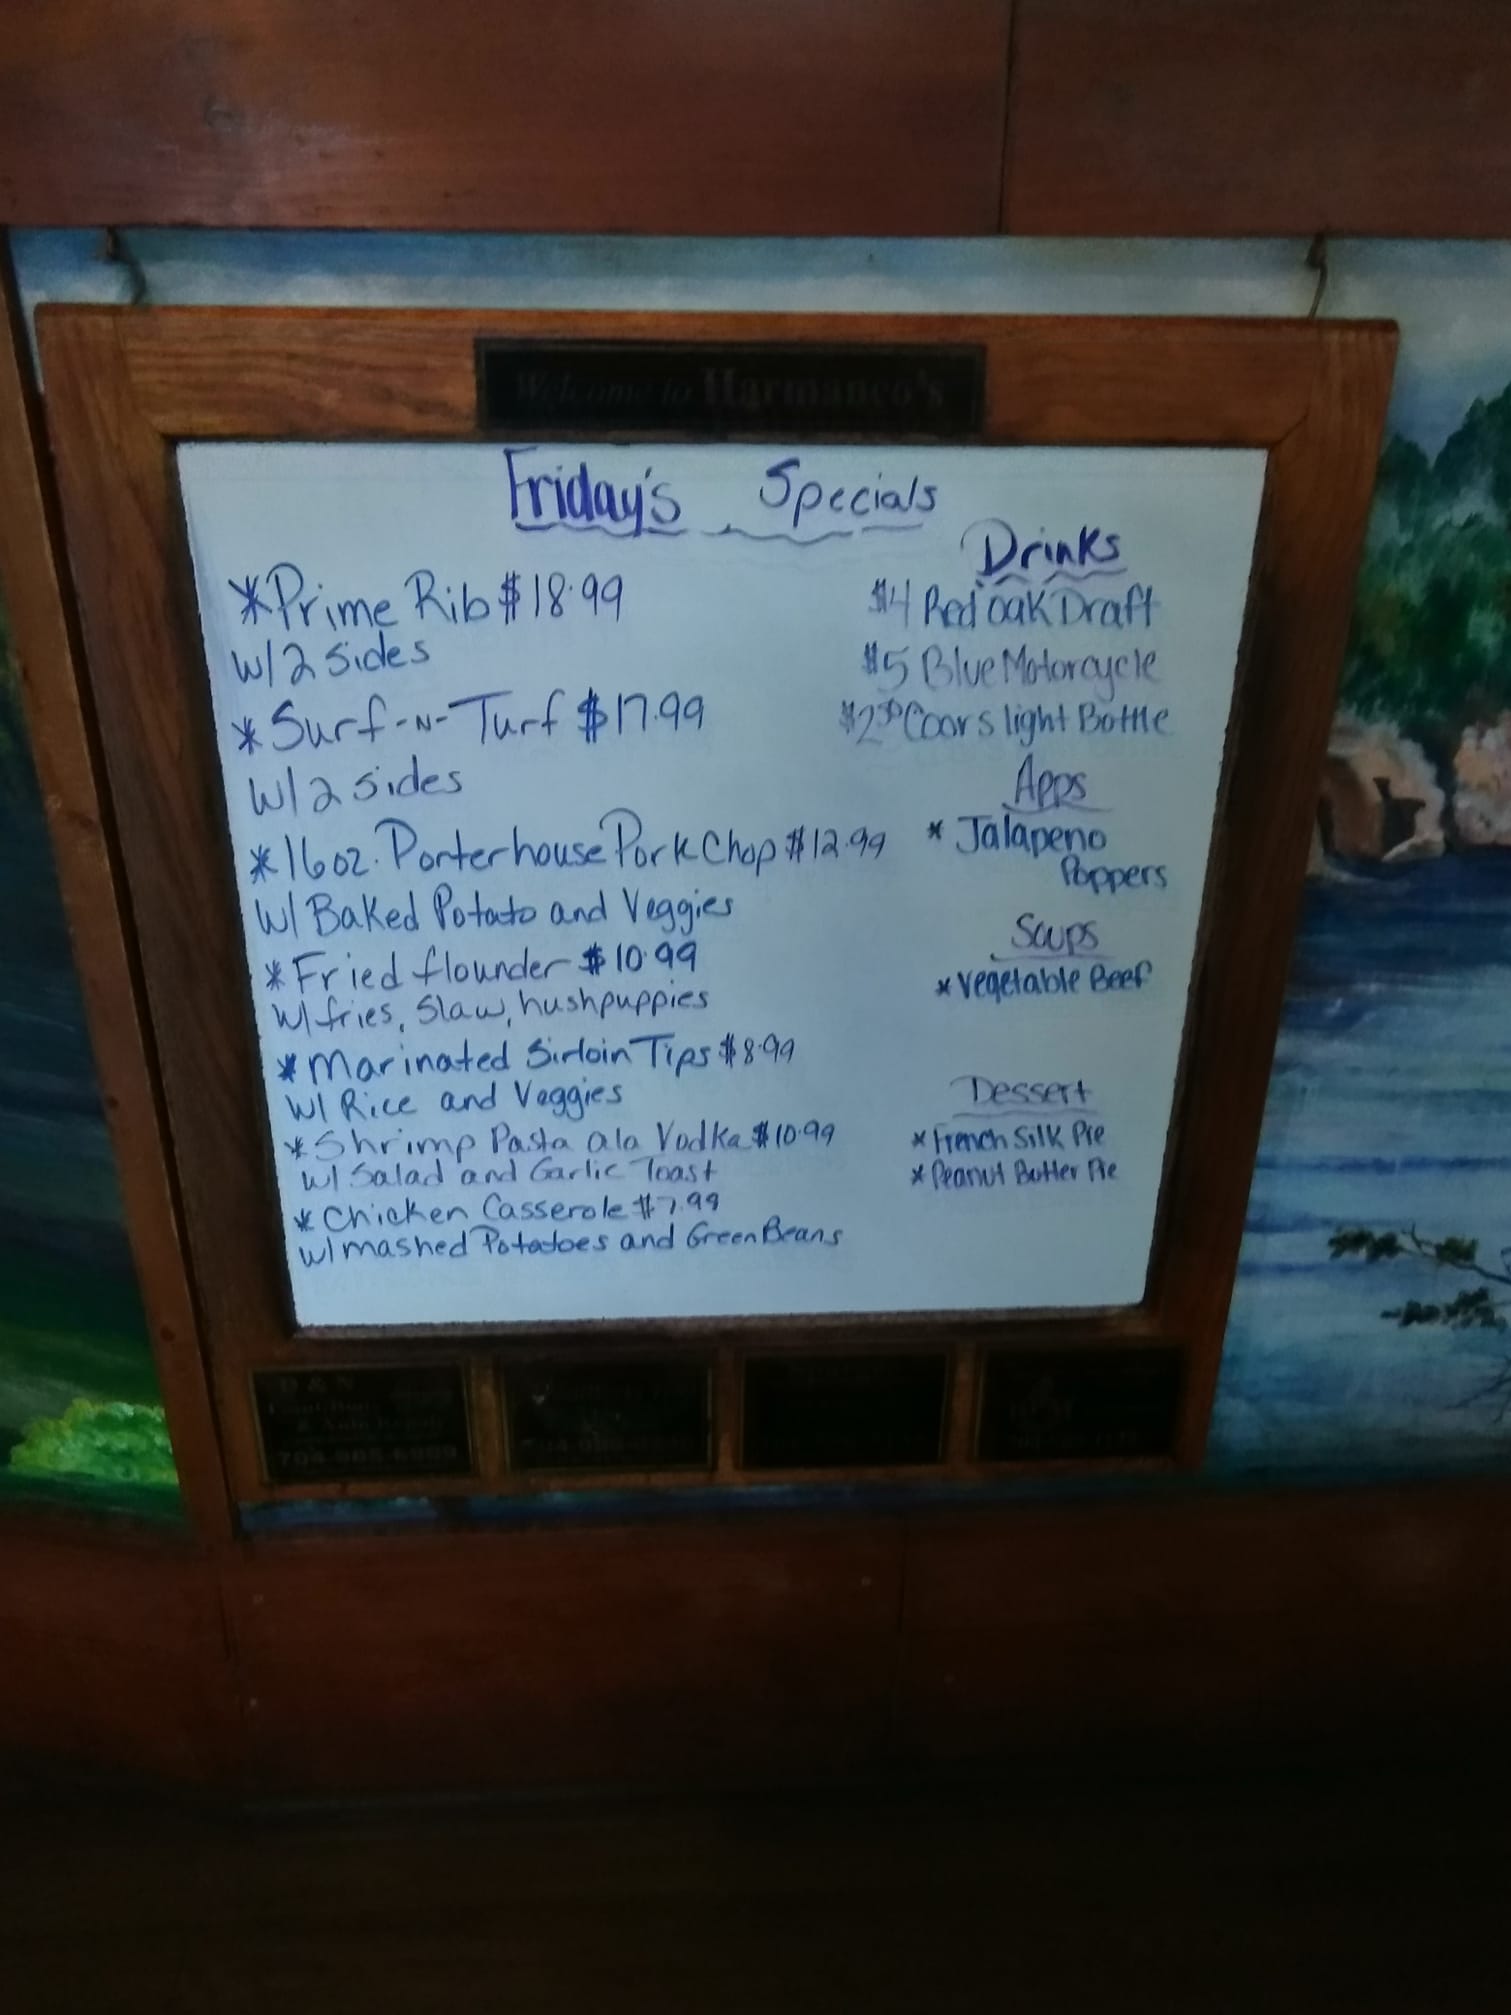 Welcome to Harmanco's
Friday's Specials
*Prime Rib $18.99
w/2 sides
*Surf-N-Turf $17.99
w/2 sides
*16oz. Porterhouse Pork Chop $12.99
w/ Baked Potato and Veggies
*Fried flounder $10.99
w/fries, Slaw, hushpuppies
*Marinated Sirloin Tips $8.99
w/ Rice and Veggies
*Shrimp Pasta ala Vodka $10.99
w/ Salad and Garlic Toast
*Chicken Casserole $7.99
w/mashed Potatoes and Green Beans
Drinks
$4 Red oak Draft
$5 Blue Motorcycle
$2 Coors light Bottle
Apps
* Jalapeno
Poppers
Soups
*Vegetable Beef
Dessert
*French Silk Pie
*Peanut Butter Pie
D & N
& Auto Repair
704-985-6909